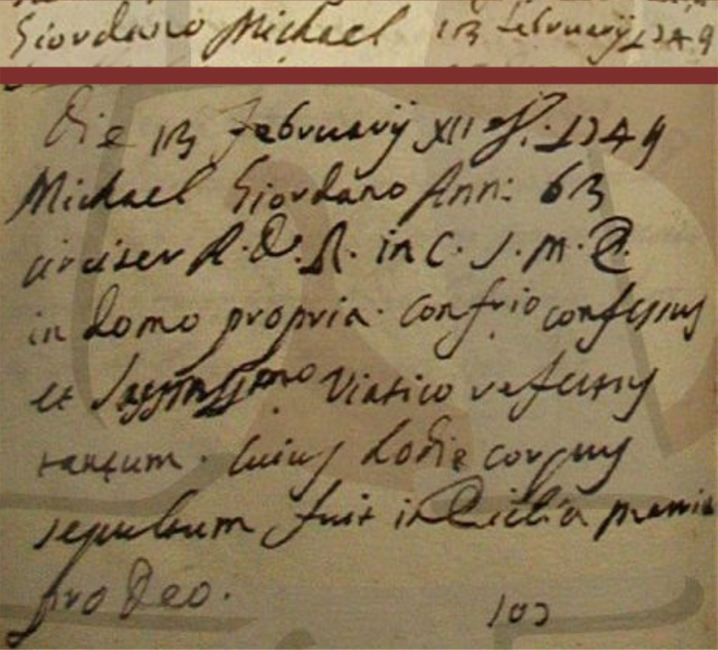 Giordano Michael 13 februarij 1749
Die 13 februarij XII 1749
Michael Giordano Ann: 63
circiter in C. S. M. E.
in domo propria. confessus
et Viatico refectus
tantum. Cuius hodie corpus
sepultum fuit in
pro Deo.
107